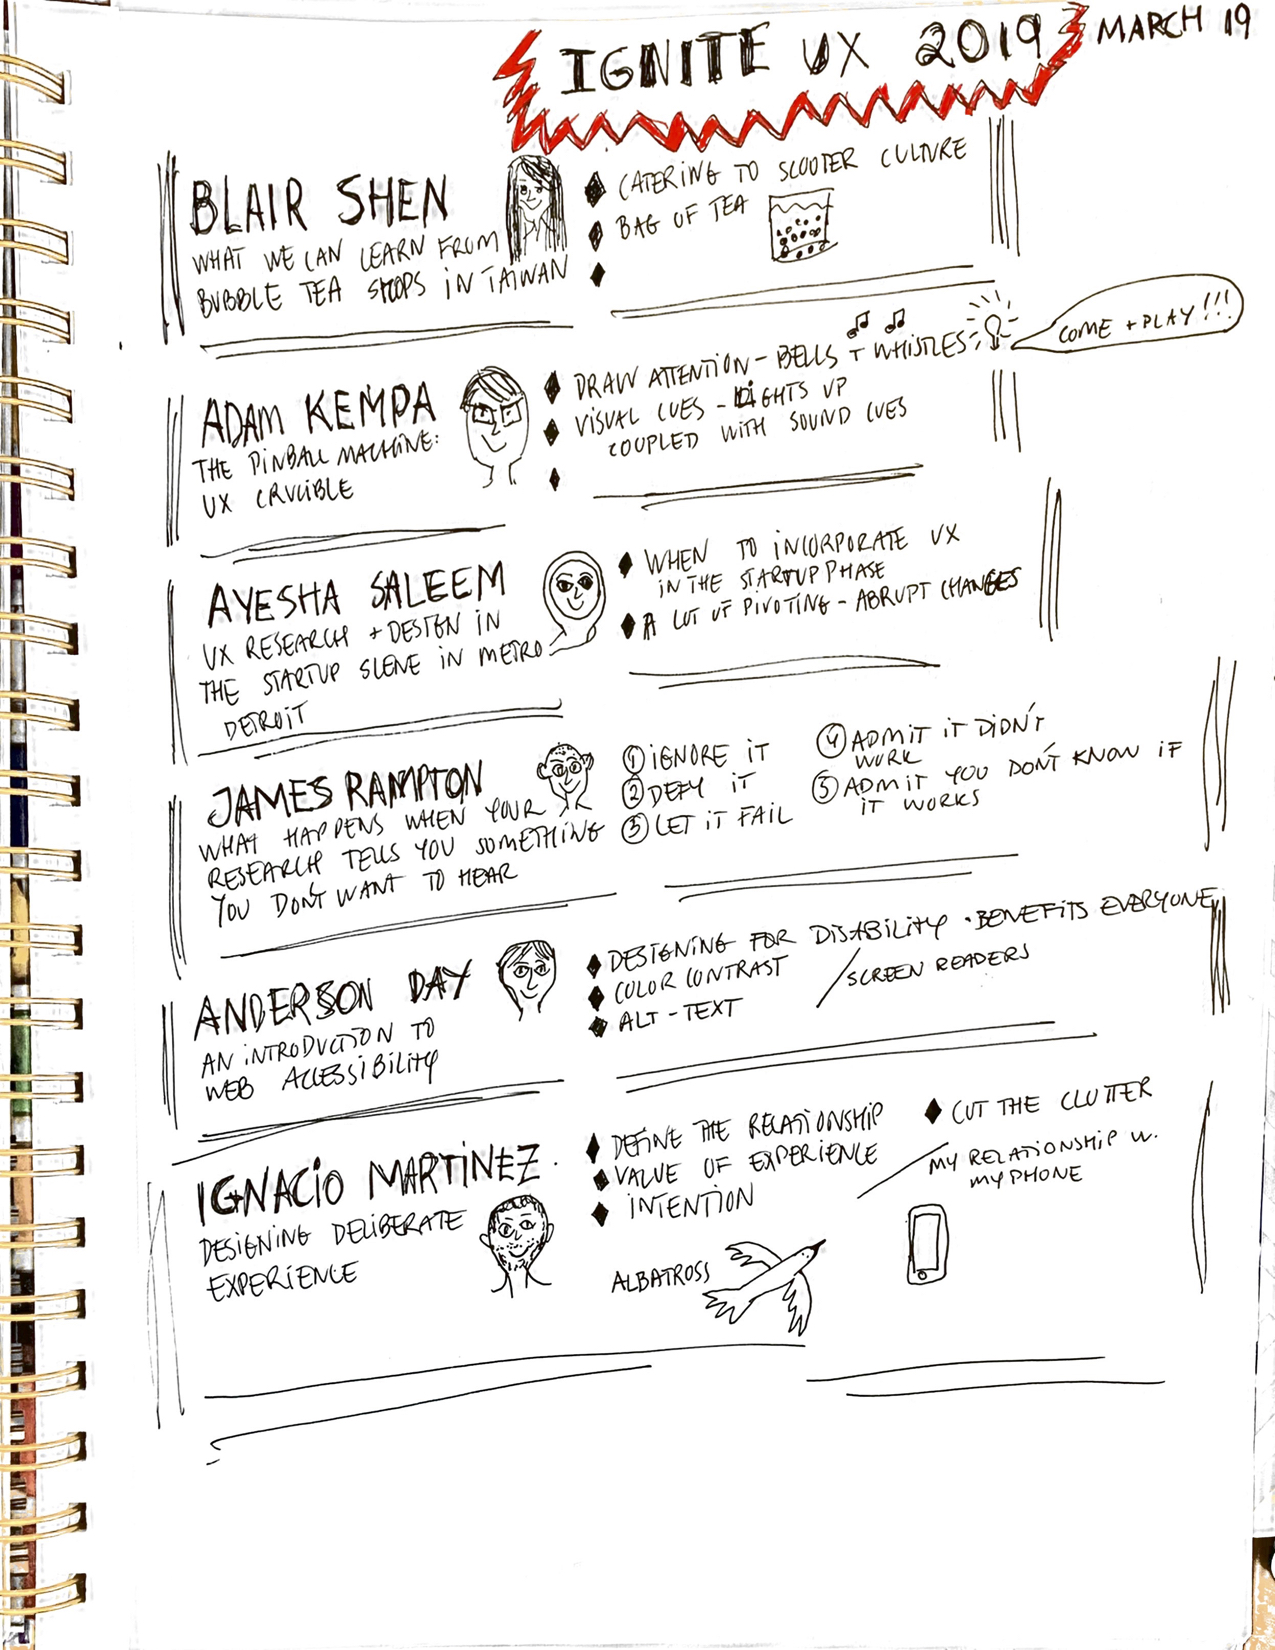 IGNITE UX 2019
MARCH 19
BLAIR SHEN
WHAT WE CAN LEARN FROM
BUBBLE TEA SHOPS IN TAIWAN
CATERING TO SCOOTER CULTURE
BAG OF TEA
ADAM KEMPA
THE PINBALL MACHINE:
UX CRUCIBLE
DRAW ATTENTION - BELLS + WHISTLES
VISUAL CUES - LIGHTS UP
COUPLED WITH SOUND CUES
COME + PLAY!!!
AYESHA SALEEM
UX RESEARCH + DESIGN IN
THE STARTUP SCENE IN METRO
DETROIT
WHEN TO INCORPORATE UX
IN THE STARTUP PHASE
A LOT OF PIVOTING - ABRUPT CHANGES
JAMES RAMPTON
WHAT HAPPENS WHEN YOUR
RESEARCH TELLS YOU SOMETHING
YOU DON'T WANT TO HEAR
① IGNORE IT
② DEFY IT
③ LET IT FAIL
④ ADMIT IT DIDN'T
WORK
⑤ ADMIT YOU DON'T KNOW IF
IT WORKS
ANDERSON DAY
AN INTRODUCTION TO
WEB ACCESSIBILITY
DESIGNING FOR DISABILITY · BENEFITS EVERYONE
COLOR CONTRAST
ALT - TEXT
SCREEN READERS
IGNACIO MARTINEZ
DESIGNING DELIBERATE
EXPERIENCE
DEFINE THE RELATIONSHIP
VALUE OF EXPERIENCE
INTENTION
CUT THE CLUTTER
MY RELATIONSHIP W.
MY PHONE
ALBATROSS